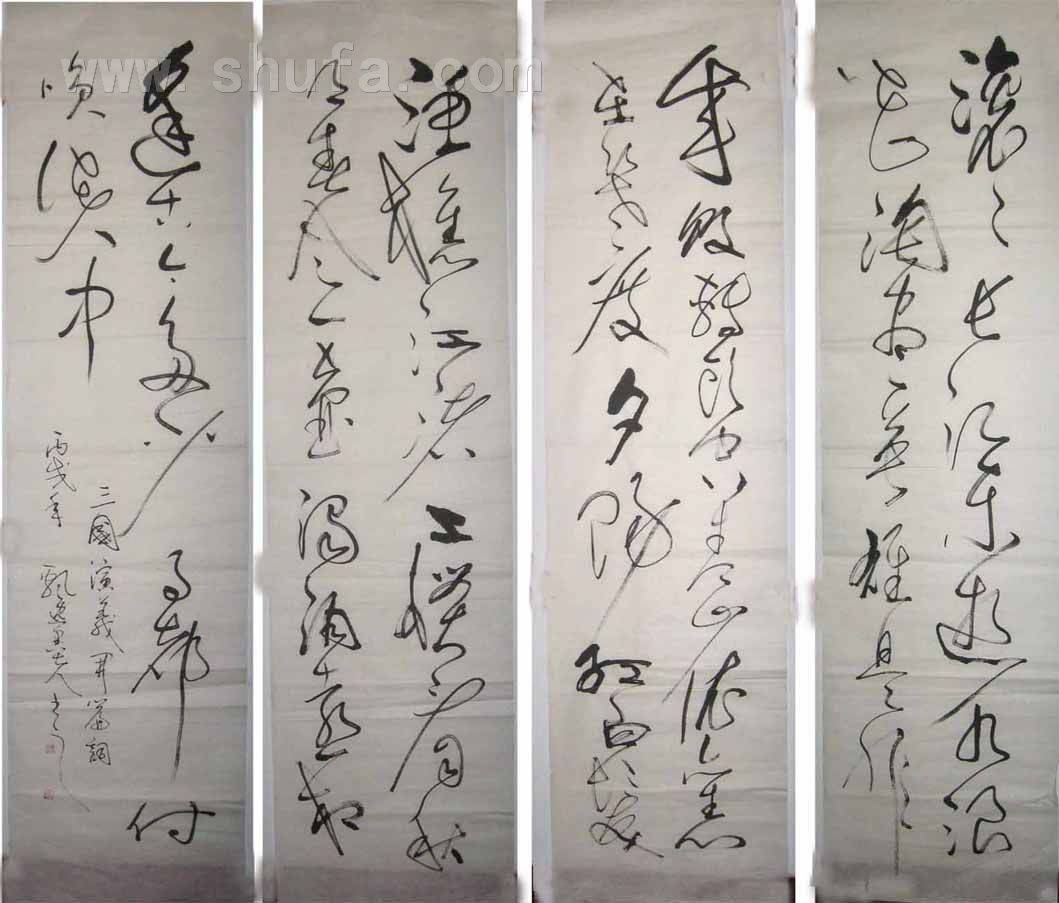 www.shufa.com
滚々长江东逝水浪
花淘尽英雄是非
成败转头空青山依舊
在幾度夕阳红白发
渔樵江渚上惯看秋
月春风一壶浊酒喜相
逢古今多少事都付
笑谈中
三國演義開篇詞
丙戌年 飘逸